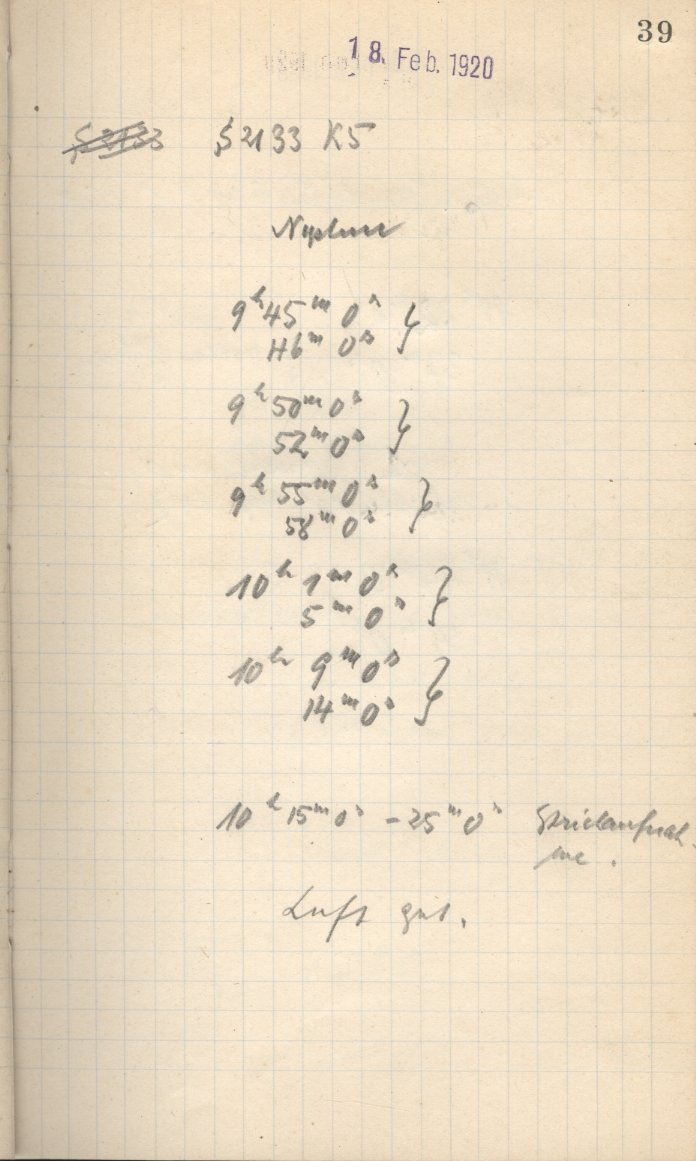 39
18. Feb. 1920
S 2133 S 2133 K5
Neptun
9ʰ 45ᵐ 0ˢ }
46ᵐ 0ˢ
9ʰ 50ᵐ 0ˢ }
52ᵐ 0ˢ
9ʰ 55ᵐ 0ˢ }
58ᵐ 0ˢ
10ʰ 1ᵐ 0ˢ }
5ᵐ 0ˢ
10ʰ 9ᵐ 0ˢ }
14ᵐ 0ˢ
10ʰ 15ᵐ 0ˢ - 25ᵐ 0ˢ Strichaufnah-
me.
Luft gut.